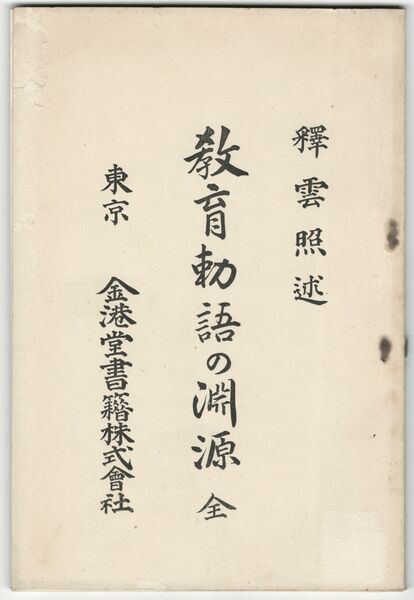 釋雲照述
教育勅語の淵源 全
東京 金港堂書籍株式會社